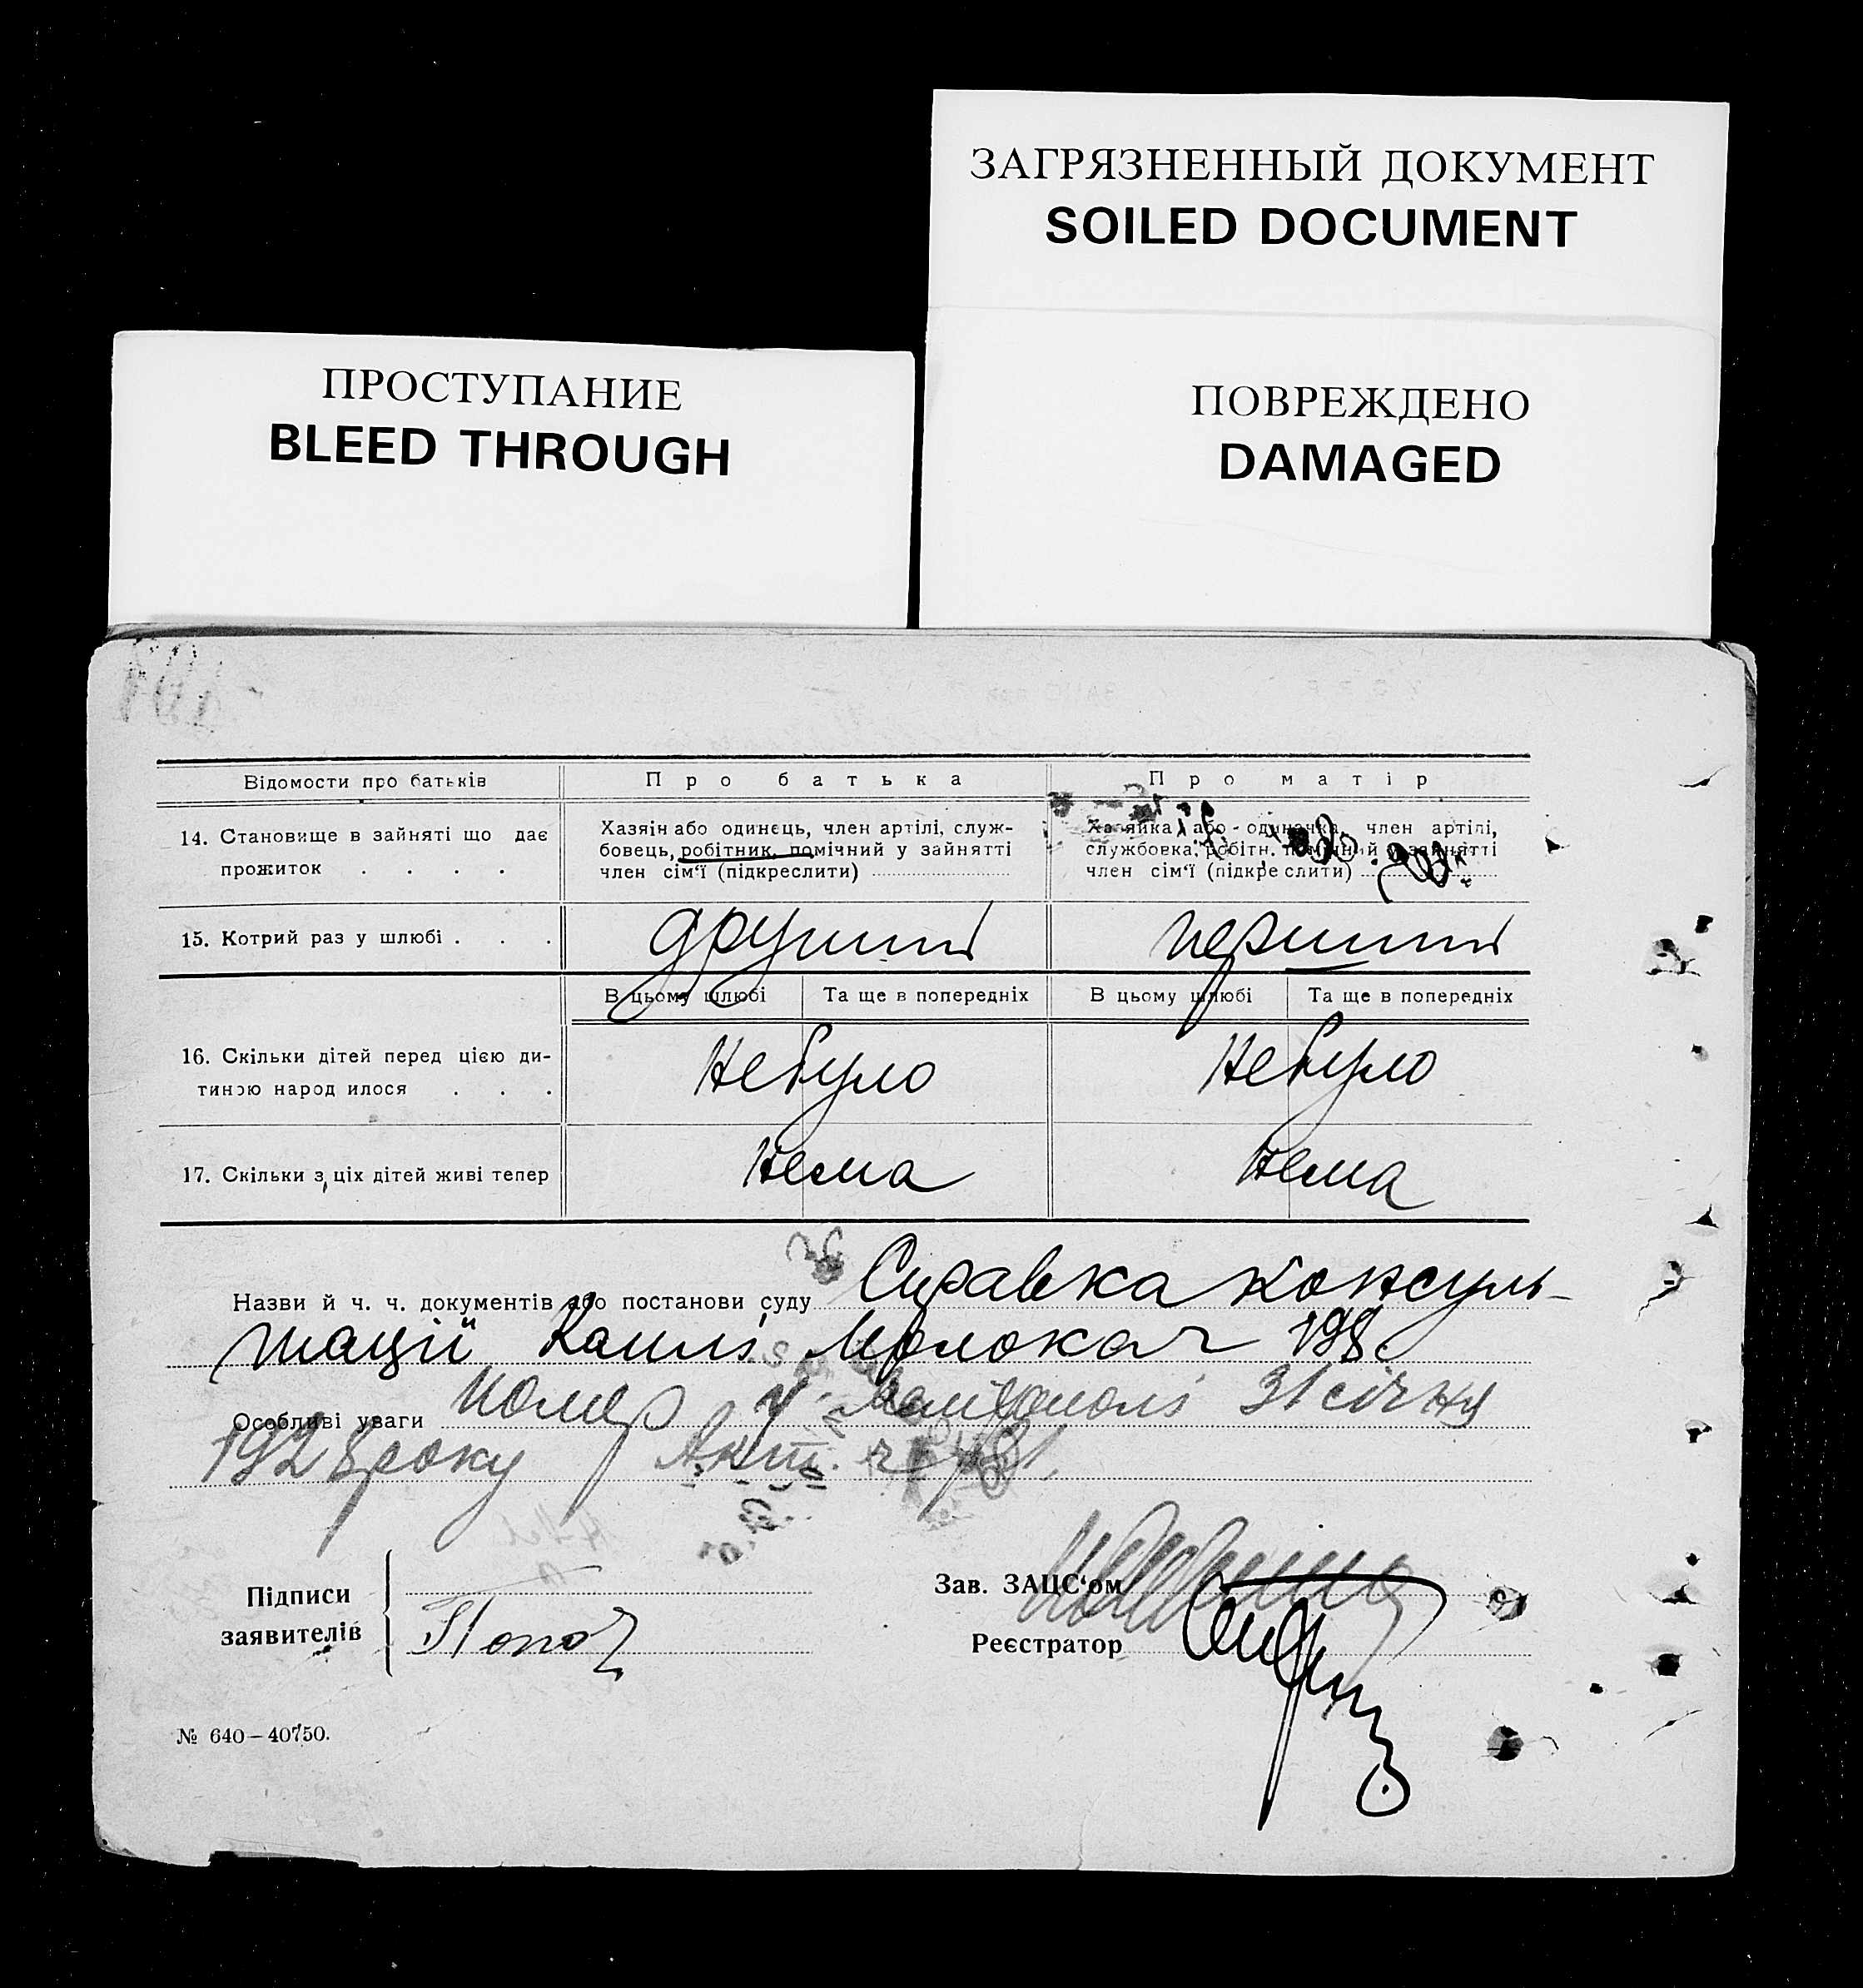 ЗАГРЯЗНЕННЫЙ ДОКУМЕНТ
SOILED DOCUMENT
ПРОСТУПАНИЕ
BLEED THROUGH
ПОВРЕЖДЕНО
DAMAGED
Відомости про батьків
Про батька
Про матір
14. Становище в зайняті що дає
прожиток . . . .
Хазяїн або одинець, член артілі, служ-
бовець, робітник, помічний у зайнятті
член сім'ї (підкреслити)
Хазяйка або - одиначка, член артілі,
службовка, робітн. помічний у зайнятті
член сім'ї (підкре слити)
15. Котрий раз у шлюбі . . .
другий
перший
В цьому шлюбі
Та ще в попередніх
В цьому шлюбі
Та ще в попередніх
16. Скільки дітей перед цією ди-
тиною народ илося . . .
Небуло
Небуло
17. Скільки з ціх дітей живі тепер
Нема
Нема
Назви й ч. ч. документів або постанови суду Справка консуль-
тації Каплі Молока ч 198
Особливі уваги Помер у 31 січня
1928 року Акт. ч
Підписи
заявителів
Зав. ЗАЦС'ом
Реєстратор
№ 640—40750.